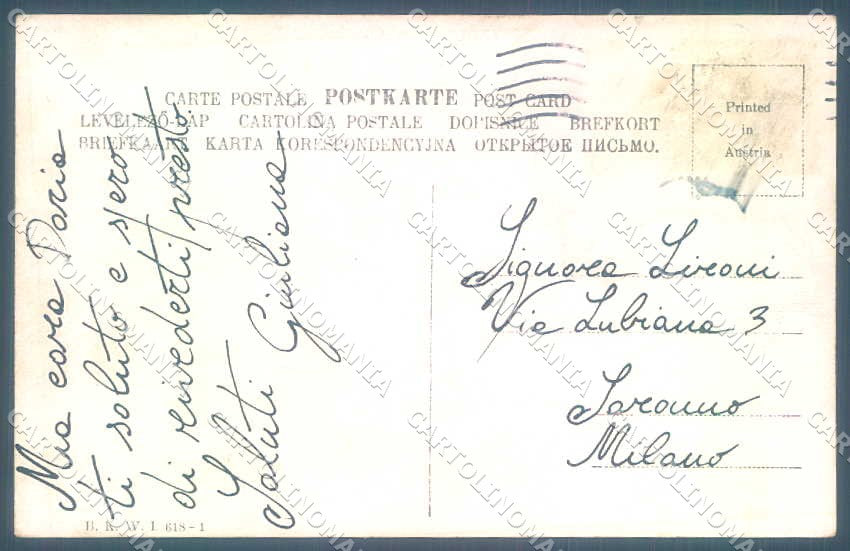 CARTE POSTALE POSTKARTE POST CARD
LEVELEZŐ-LAP CARTOLINA POSTALE DOPISNICE BREFKORT
BRIEFKAART KARTA KORESPONDENCYJNA ОТКРЫТОЕ ПИСЬМО.
Printed
in
Austria
Mia cara Daria
ti saluto e spero
di rivederti presto.
Saluti Giuliana
Signora Sironi
Via Lubiana 3
Saronno
Milano
B. K. W. I 618-1
CARTOLINOMANIA